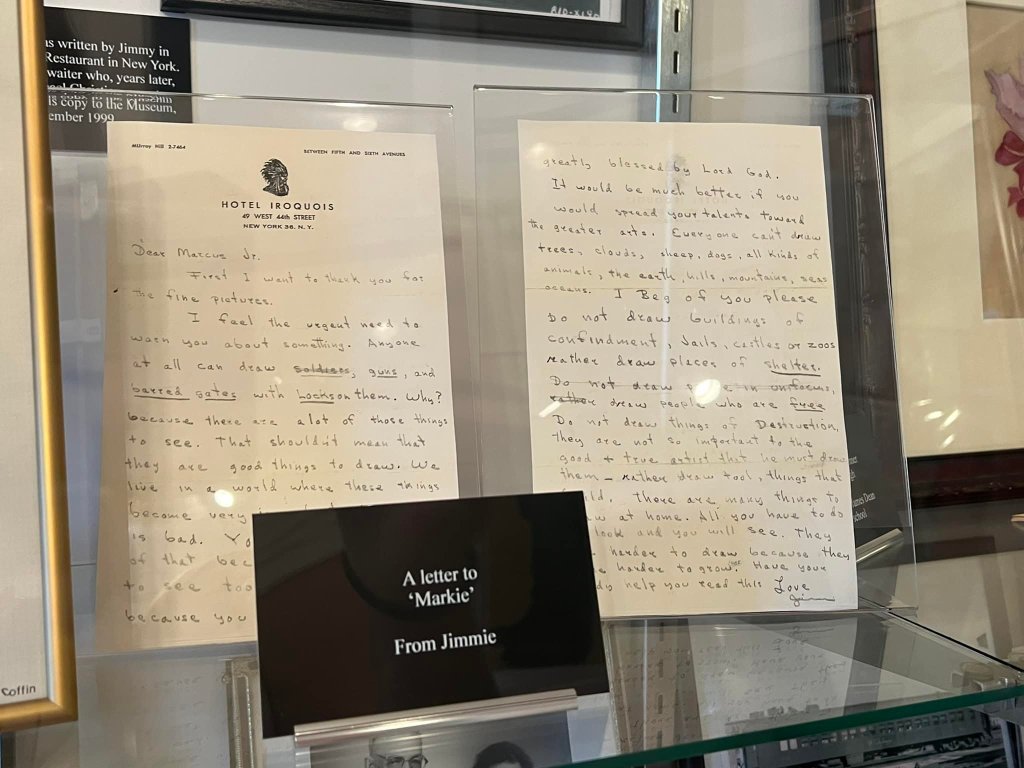 as written by Jimmy in
Restaurant in New York.
waiter who, years later,
is copy to the Museum,
ember 1999
MUrray Hill 2-7464
BETWEEN FIFTH AND SIXTH AVENUES
HOTEL IROQUOIS
49 WEST 44th STREET
NEW YORK 36, N.Y.
Dear Marcus Jr.
First I want to thank you for
the fine pictures.
I feel the urgent need to
warn you about something. Anyone
at all can draw soldiers, guns, and
barred gates with Locks on them. Why?
because there are a lot of those things
to see. That shouldn't mean that
they are good things to draw. We
live in a world where these things
become very
is bad. Yo
of that bec
to see too
because you
greatly blessed by Lord God.
It would be much better if you
would spread your talents toward
the greater arts. Everyone can't draw
trees, clouds, sheep, dogs, all kinds of
animals, the earth, hills, mountains, seas
oceans. I Beg of you please
Do not draw buildings of
confindment, Jails, castles or zoos
rather draw places of shelter.
Do not draw in uniforms,
rather draw people who are free
Do not draw things of Destruction,
they are not so important to the
good + true artist that he must draw
them – rather draw tool, things that
ild. There are many things to
w at home. All you have to do
look and you will see. They
harder to draw because they
e harder to grow. Have your
dy help you read this Love
Jim
A letter to
'Markie'
From Jimmie
Coffin
ames Dean
chool